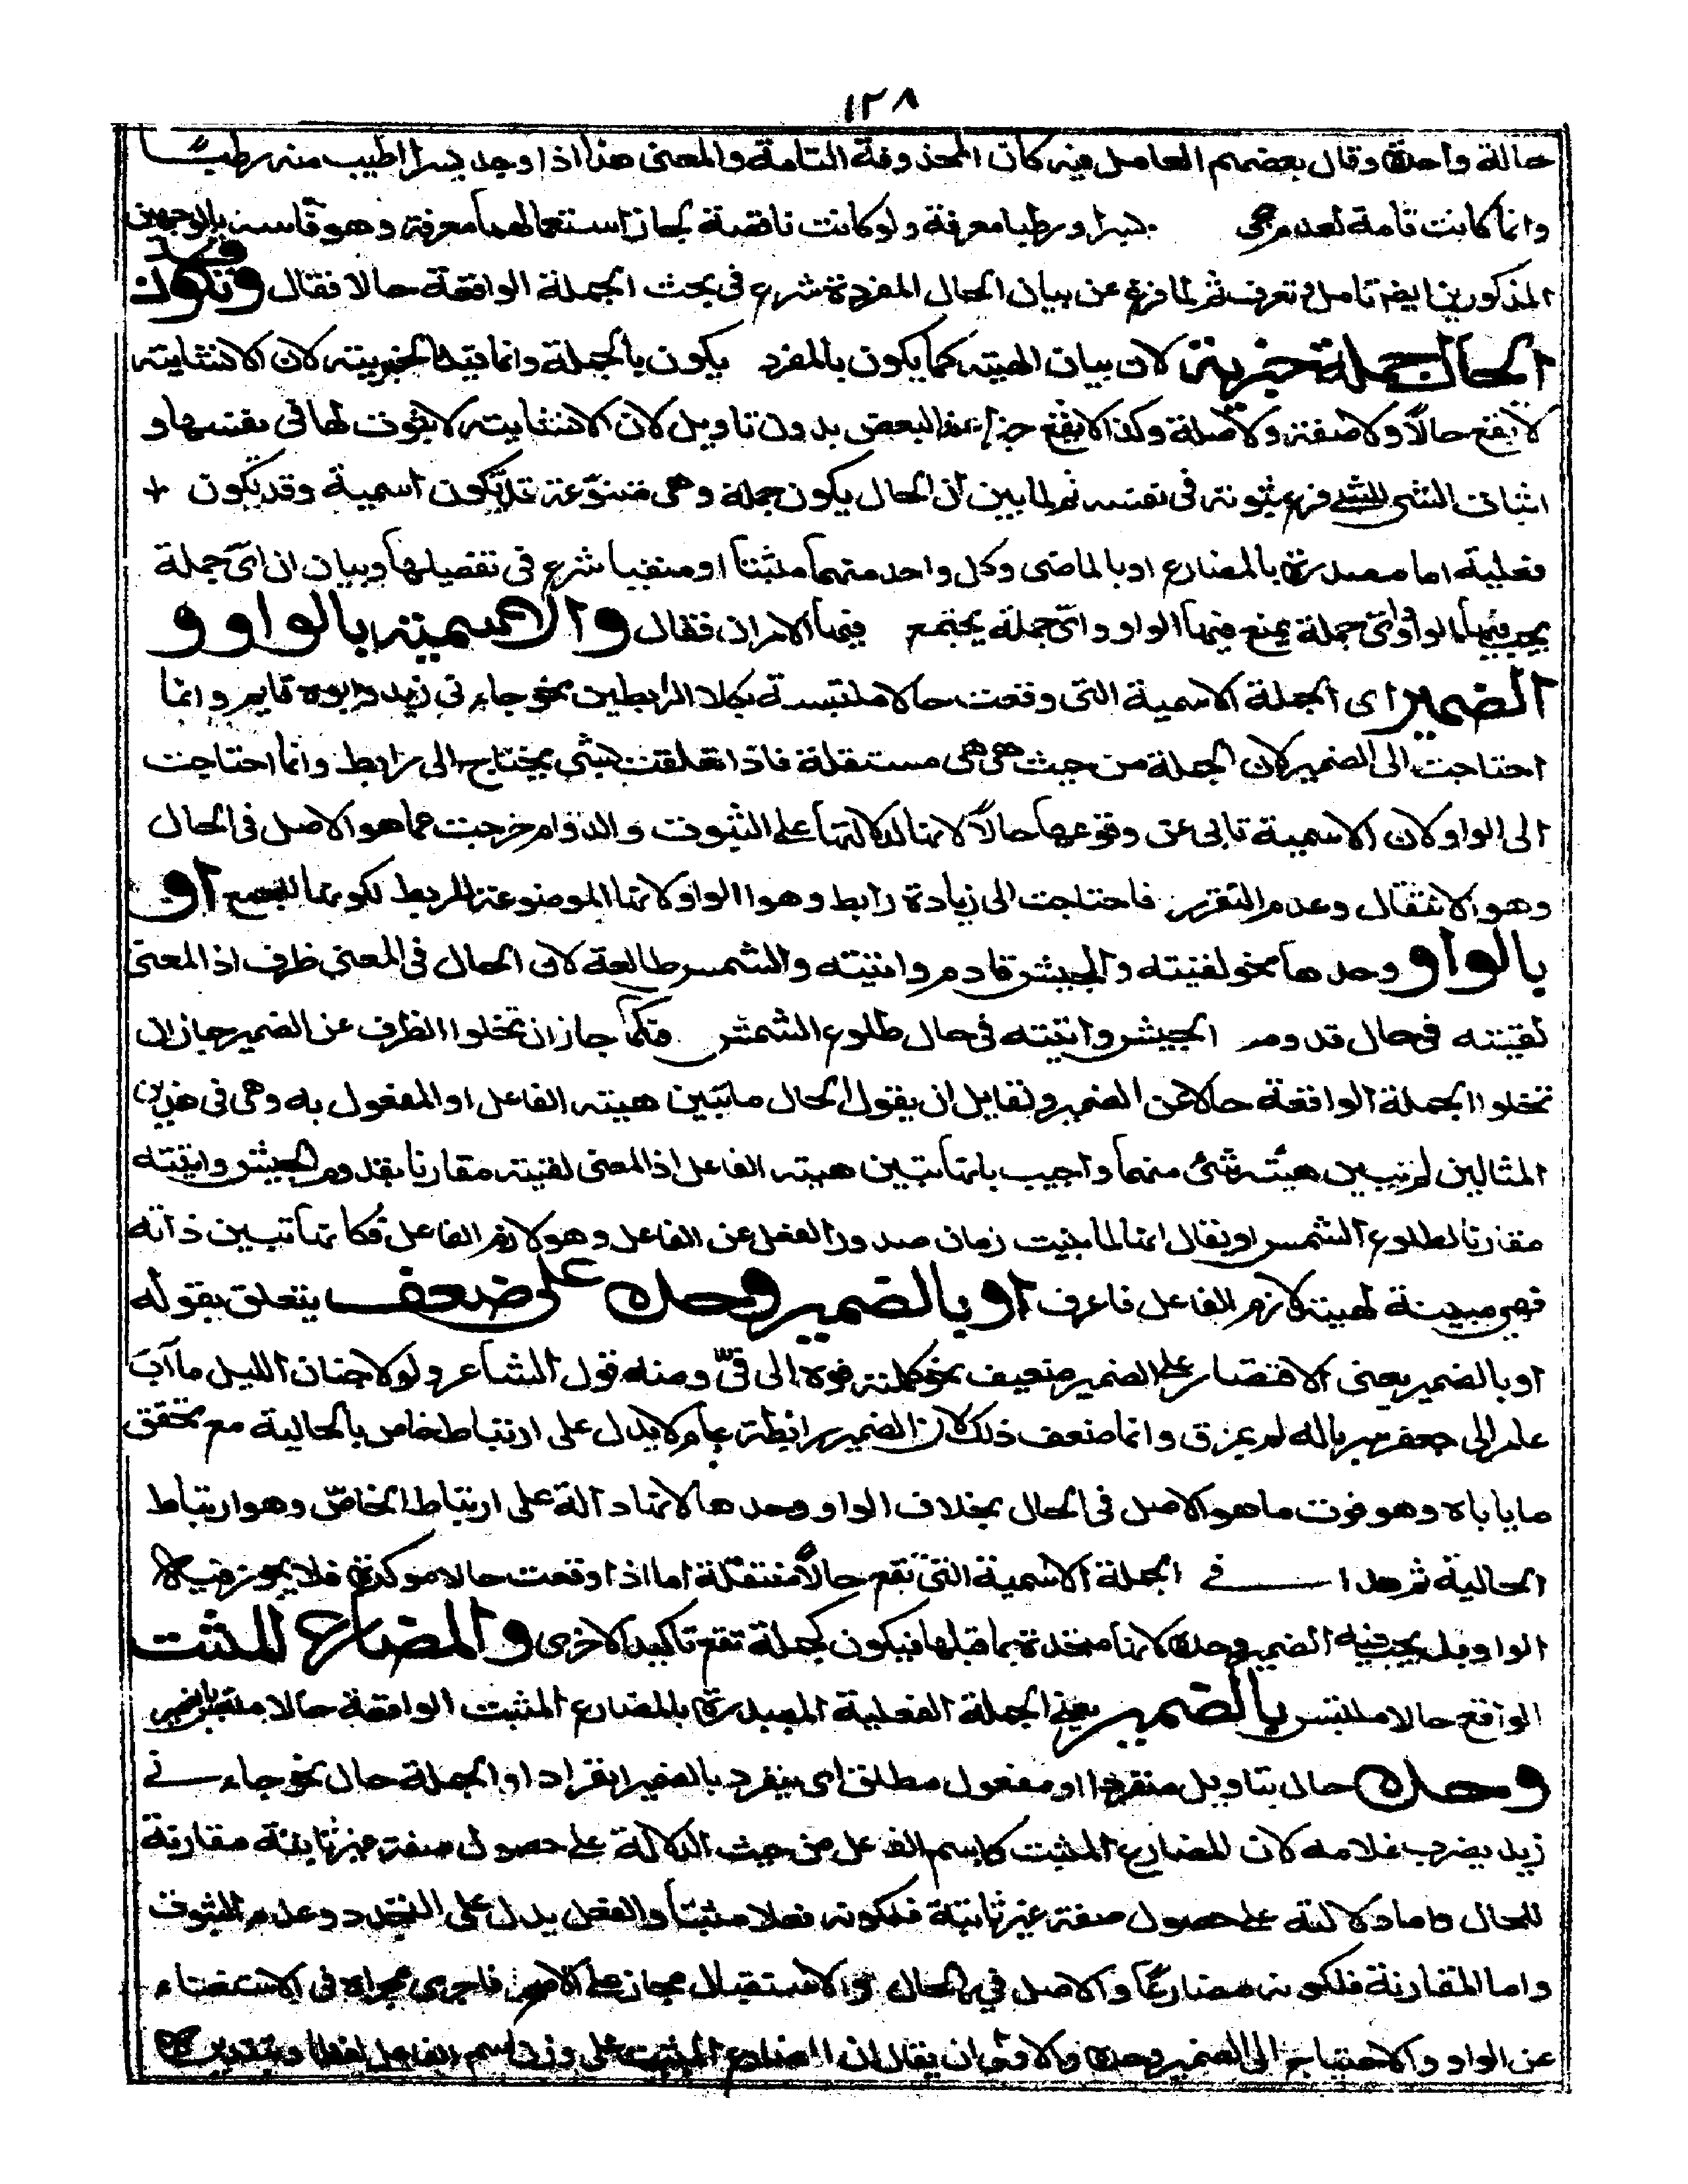 ١٢٨
حالة واحدة وقال بعضهم العامل فيه كان المحذوفة التامة والمعنى هذا اذا وجد بسرا اطيب منه رطبا
وانما كانت تامة لعدم مجى بسرا ورطبا معرفة ولو كانت ناقصة لجاز استعمالهما معرفة وهو فاسد بالوجهين
المذكورين ايضا تامل تعرف ثم لما فرغ عن بيان الحال المفردة شرع فى بحث الجملة الواقعة حالا فقال وقد تكون
الحال جملة خبرية لان بيان الهيئة كما يكون بالمفرد يكون بالجملة وانما قيد بالخبرية لان الانشائية
لا يقع حالا ولا صفة ولا صلة وكذا لا يقع خبرا عند البعض بدون تاويل لان الانشائية لا ثبوت لها فى نفسها و
اثبات الشى للشى فرع ثبوته فى نفسه ثم لما بين ان الحال يكون جملة وهى متنوعة قد تكون اسمية وقد يكون
فعلية اما مصدرة بالمضارع او بالماضى وكل واحد منهما مثبتا او منفيا شرع فى تفصيلها وبيان ان اى جملة
يجب فيها الواو واى جملة يمنع فيها الواو واى جملة يجتمع فيها الامران فقال والاسمية بالواو و
الضمير اى الجملة الاسمية التى وقعت حالا ملتبسة بكلا الرابطين نحو جاءنى زيد وابوه قايم وانما
احتاجت الى الضمير لان الجملة من حيث هى هى مستقلة فاذا تعلقت بشى يحتاج الى رابط وانما احتاجت
الى الواو لان الاسمية تابى عن وقوعها حالا لانها لدلالتها على الثبوت والدوام خرجت عما هو الاصل فى الحال
وهو الانتقال وعدم التقرر فاحتاجت الى زيادة رابط وهو الواو لانها الموضوعة للربط لكونها للجمع او
بالواو وحدها نحو لقيته والجيش قادم واتيته والشمس طالعة لان الحال فى المعنى ظرف اذ المعنى
لقيته فى حال قدوم الجيش واتيته فى حال طلوع الشمس فكما جاز ان تخلوا الظرف عن الضمير جاز ان
تخلوا الجملة الواقعة حالا عن الضمير ولقايل ان يقول الحال ما تبين هيئة الفاعل او المفعول به وهى فى هذين
المثالين لم تبين هيئة شئ منهما واجيب بانها تبين هيئة الفاعل اذ المعنى لقيته مقارنا بقدوم الجيش واتيته
مقارنا لطلوع الشمس او نقال انها لما بينت زمان صدور الفعل عن الفاعل وهو لازم الفاعل فكانها تبين ذاته
فهى مبينة لهيئة لازم الفاعل فاعرف او بالضمير وحده على ضعف يتعلق بقوله
او بالضمير يعنى الاقتصار على الضمير ضعيف نحو كلمته فوه الى فىّ ومنه قول الشاعر ولولا جنان الليل ما آب
عامر الى جعفر سرباله لم يمزق وانما ضعف ذلك لان الضمير رابطة عام لا يدل على ارتباط خاص بالحالية مع تحقق
ما ياباه وهو فوت ما هو الاصل فى الحال بخلاف الواو وحدها لانها دالة على ارتباط الخاص وهو ارتباط
الحالية ثم هذا فى الجملة الاسمية التى تقع حالا منتقلة اما اذا وقعت حالا موكدة فلا يجوز فيه
الواو بل يجب فيه الضمير وحده لانها متحدة بما قبلها فيكون كجملة تقع تاكيدا لاخرى والمضارع المثبت
الواقع حالا ملتبس بالضمير يعنى الجملة الفعلية المصدرة بالمضارع المثبت الواقعة حالا ملتبس بالضمير
وحده حال بتاويل منفردا او مفعول مطلق اى ينفرد بالضمير انفرادا والجملة حال نحو جاءنى
زيد يضرب غلامه لان المضارع المثبت كاسم الفاعل من حيث الدلالة على حصول صفة غير ثابتة مقارنة
للحال واما دلالته على حصول صفة غير ثابتة فلكونه فعلا مثبتا والفعل يدل على التجدد وعدم الثبوت
واما المقارنة فلكونه مضارعا والاصل فيه الحال والاستقبال مجاز على الاصح فاجرى مجراه فى الاستغناء
عن الواو والاحتياج الى الضمير وحده والاولى ان يقال ان المضارع المثبت على وزن اسم الفاعل لفظا وبتقدير